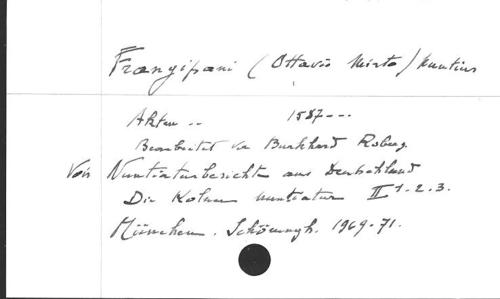 Frangipani (Ottavio Mirto) Nuntius
Akten .. 1587---
Bearbeitet von Burkhard Roberg.
Voir Nuntiaturberichte aus Deutschland
Die Kölner Nuntiatur II 1.2.3.
München. Schöningh. 1969-71.